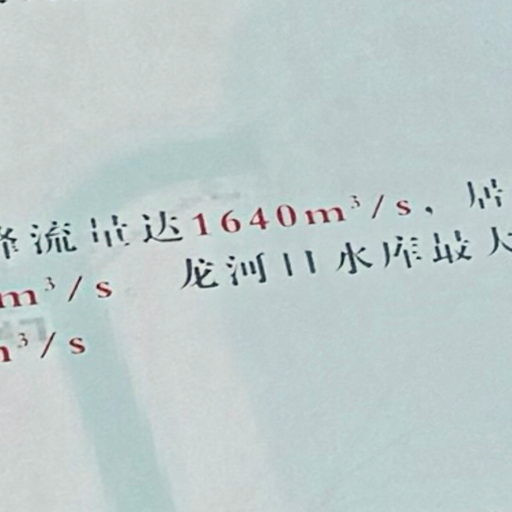 流量达1640m³/s，居
m³/s 龙河口水库最大
m³/s